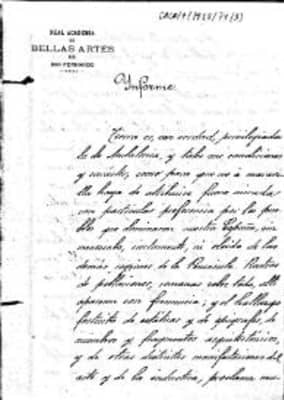 CACA/9/7958/71(3)
REAL ACADEMIA
DE
BELLAS ARTES
DE
SAN FERNANDO
Informe
Tierra es, con verdad, privilegiada
la de Andalucía, y tales sus condiciones
y suerte, como para que no á maravi
lla haya de atribuirse fuera mirada
con particular preferencia por los pue
blos que dominaron nuestra España, sin
menoscabo, ciertamente, ni olvido de las
demás regiones de la Península. Restos
de poblaciones, romanas sobre todo, allí
aparecen con frecuencia; y el hallazgo
fortuito de estatuas y de epígrafes, de
miembros y fragmentos arquitectónicos,
y de otras distintas manifestaciones del
arte y de la industria, proclama